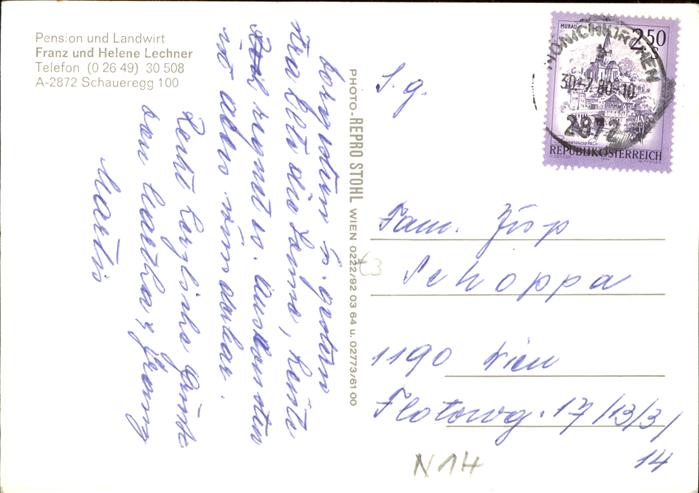 Pension und Landwirt
Franz und Helene Lechner
Telefon (0 26 49) 30 508
A-2872 Schaueregg 100
Vorgestern u. gestern
die Sonne, heute
regnet es.
ist aber wunderbar.
Recht herzliche Grüße
von Martha &
Martin
PHOTO-REPRO STOHL WIEN 0222/92 03 64 u. 02773/61 00
S. g.
Fam.
Schoppa
1190 Wien
Flotowg. 17/13/3/
14
N14
€3
2.50
MÖNICHKIRCHEN
30.-7.80-10
2872
REPUBLIK ÖSTERREICH